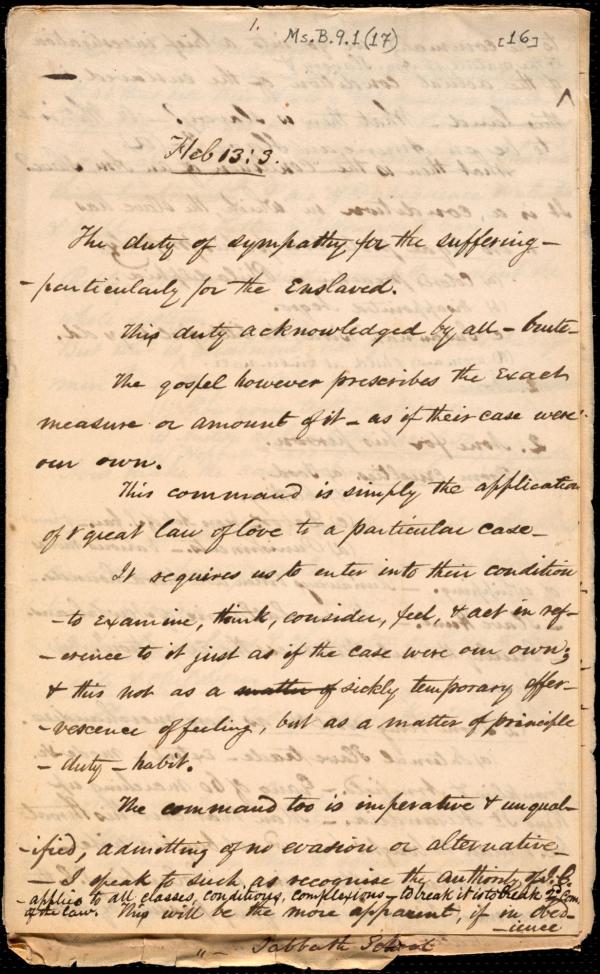 1.
Ms. B. 9. 1 (17)
[16]
Heb 13:3.
The duty of sympathy for the suffering –
– particularly for the Enslaved.
This duty acknowledged by all – brute –
The gospel however prescribes the exact
measure or amount of it – as if their case were
our own.
This command is simply the application
of great law of love to a particular case –
It requires us to enter into their condition
– to examine, think, consider, feel, & act in ref-
-erence to it just as if the case were our own;
& this not as a matter of sickly temporary effer-
-vescence of feeling, but as a matter of principle
– duty – habit.
The command too is imperative & unqual-
-ified, admitting of no evasion or alternative –
– I speak to such as recognise the authority of J. C.
– applies to all classes, conditions, complexions – to break it is to break 2d com
of the law. This will be the more apparent, if in obed-
-ience
Sabbath School